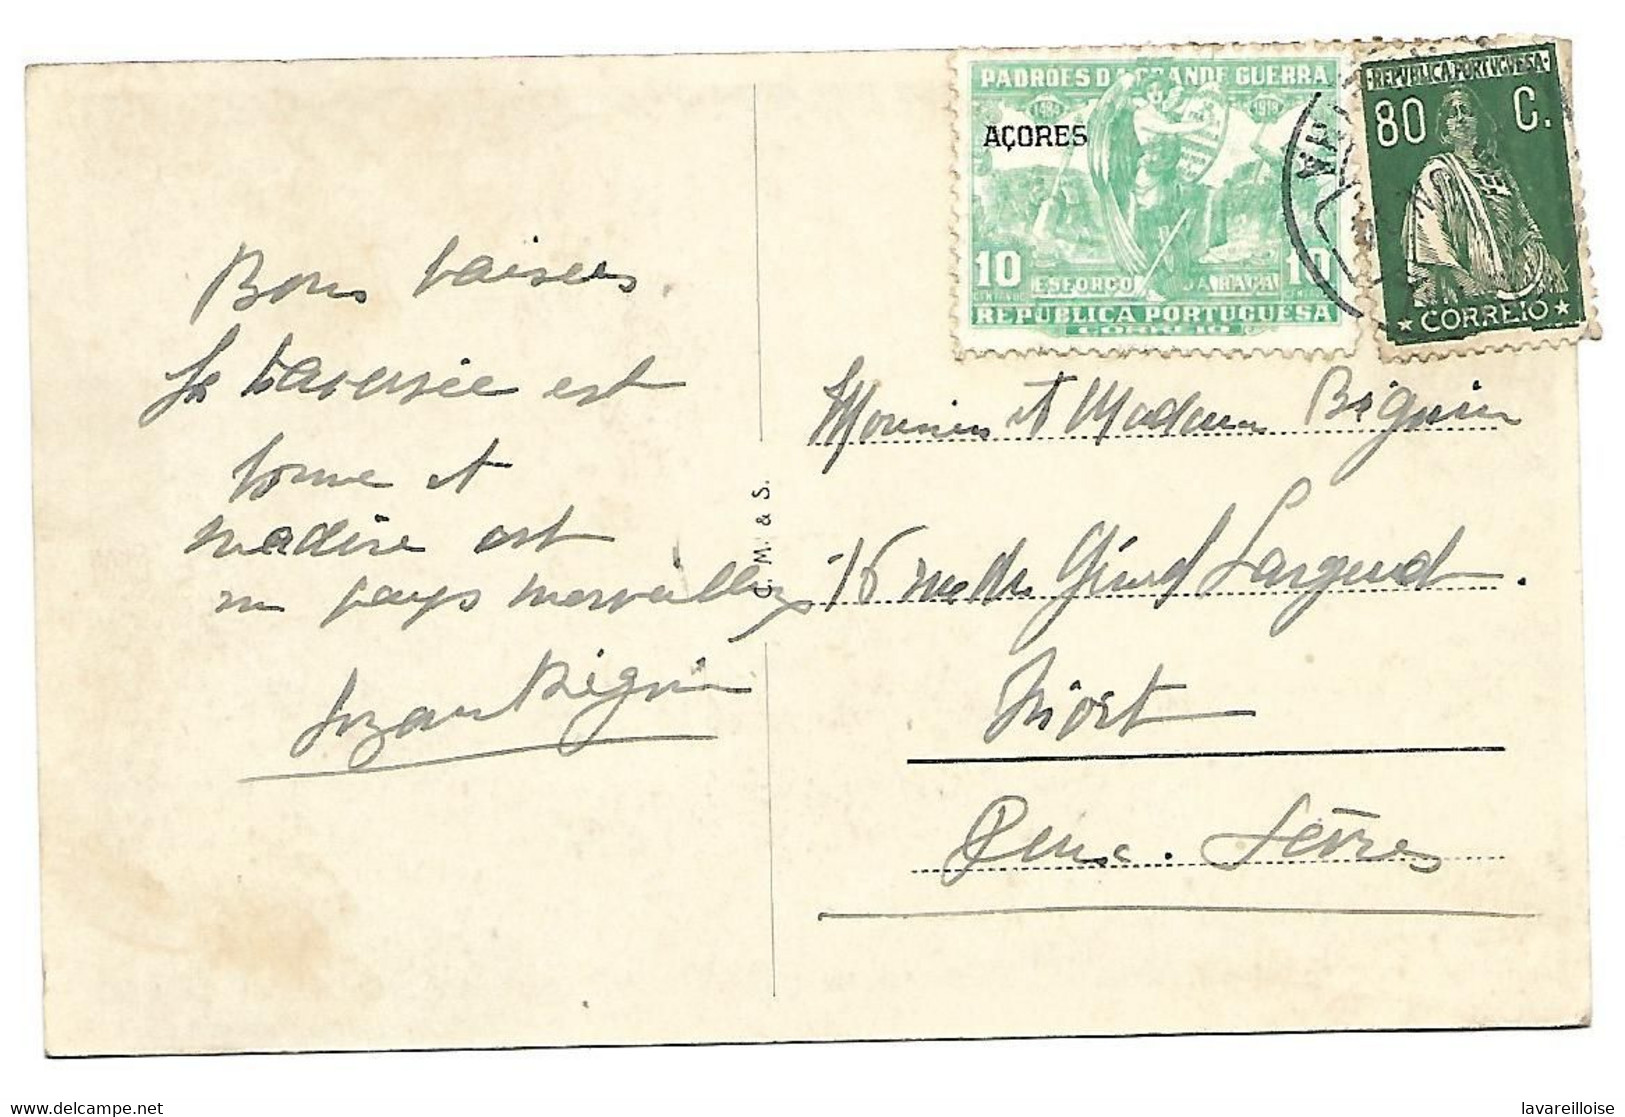 Bons baisers
la traversée est
bonne et
madère est
un pays merveilleux
Suzanne Béguin
C. M. & S.
PADRÕES DA GRANDE GUERRA
1484 1918
AÇORES
10 10
ESFORÇO DA RAÇA
REPUBLICA PORTUGUESA
CORREIO
REPVBLICA PORTVGVESA
80 C.
CORREIO
Monsieur et Madame Béguin
16 rue du Gérard
Niort
Deux-Sèvres
lavareilloise